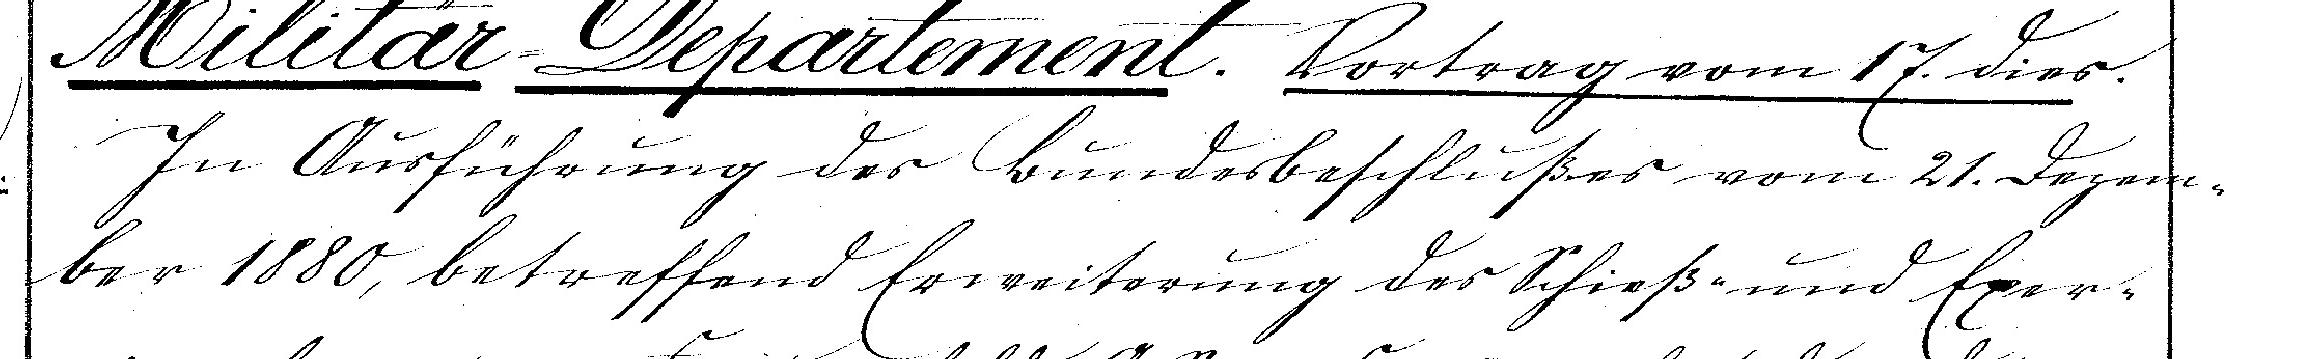 Militär-Departement. Vortrag vom 17. dies.
In Ausführung des Bundesbeschlußes vom 21. Dezem-
ber 1880, betreffend Erweiterung des Schieß- und Exer-